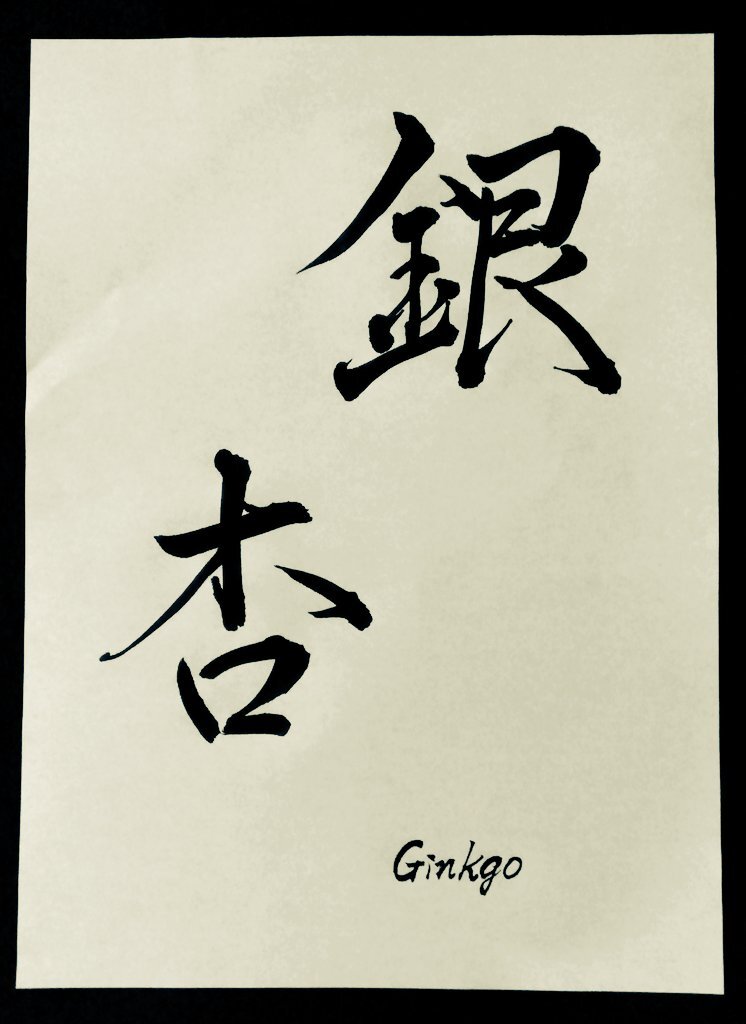 銀
杏
Ginkgo